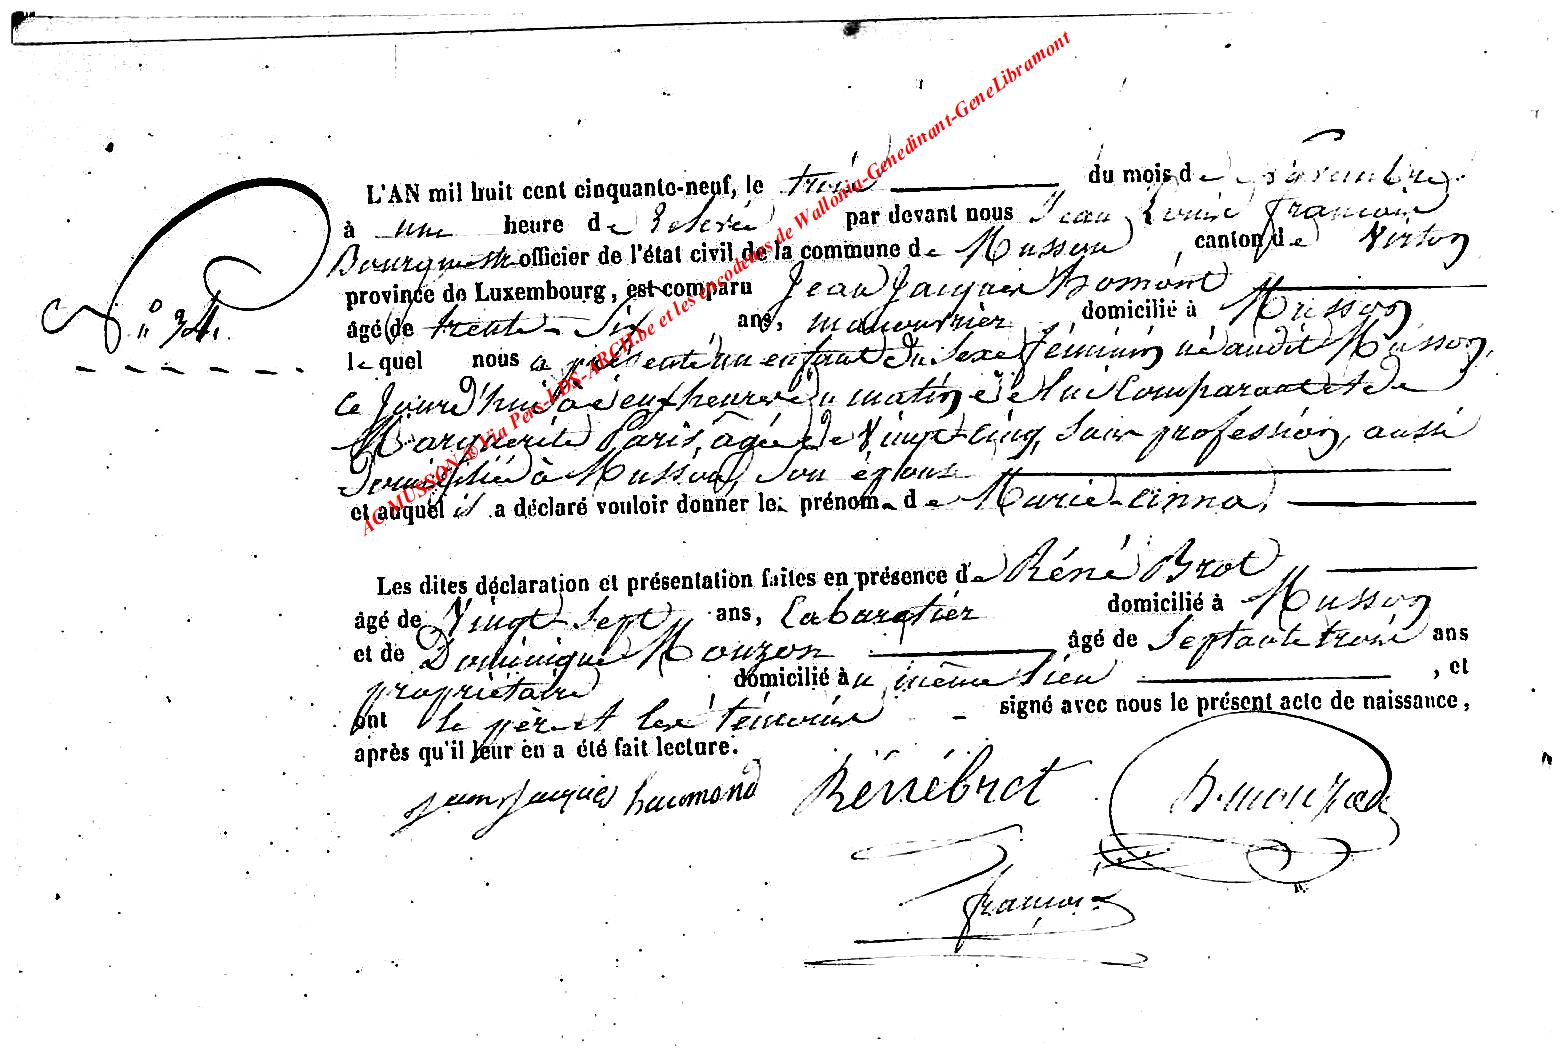 L'AN mil huit cent cinquante-neuf, le trois du mois de novembre
à une heure de relevée par devant nous Jean Louis François
Bourgmestre officier de l'état civil de la commune de Musson canton de Virton
province de Luxembourg, est comparu Jean Jacques Homont
âgé de trente-six ans, manouvrier domicilié à Musson
lequel nous a présenté un enfant du sexe féminin né audit Musson,
ce jourd'hui à deux heures du matin de lui comparant et de
Marguerite Paris, âgée de vingt-cinq, sans profession, aussi
domiciliée à Musson, son épouse
et auquel il a déclaré vouloir donner le prénom de Marie-anna,
N° 34.
Les dites déclaration et présentation faites en présence de Réné Brot
âgé de vingt-sept ans, Cabaretier domicilié à Musson
et de Dominique Mouzon âgé de septante trois ans
propriétaire domicilié au même lieu, et
ont le père et les témoins signé avec nous le présent acte de naissance,
après qu'il leur en a été fait lecture.
jean jacques haumond Rénébrot D. mouzon
françois
AC MUSSON © Via Pers-LDS-ARCH.be et les encodeurs de Wallonia-Genedinant-GeneLibramont